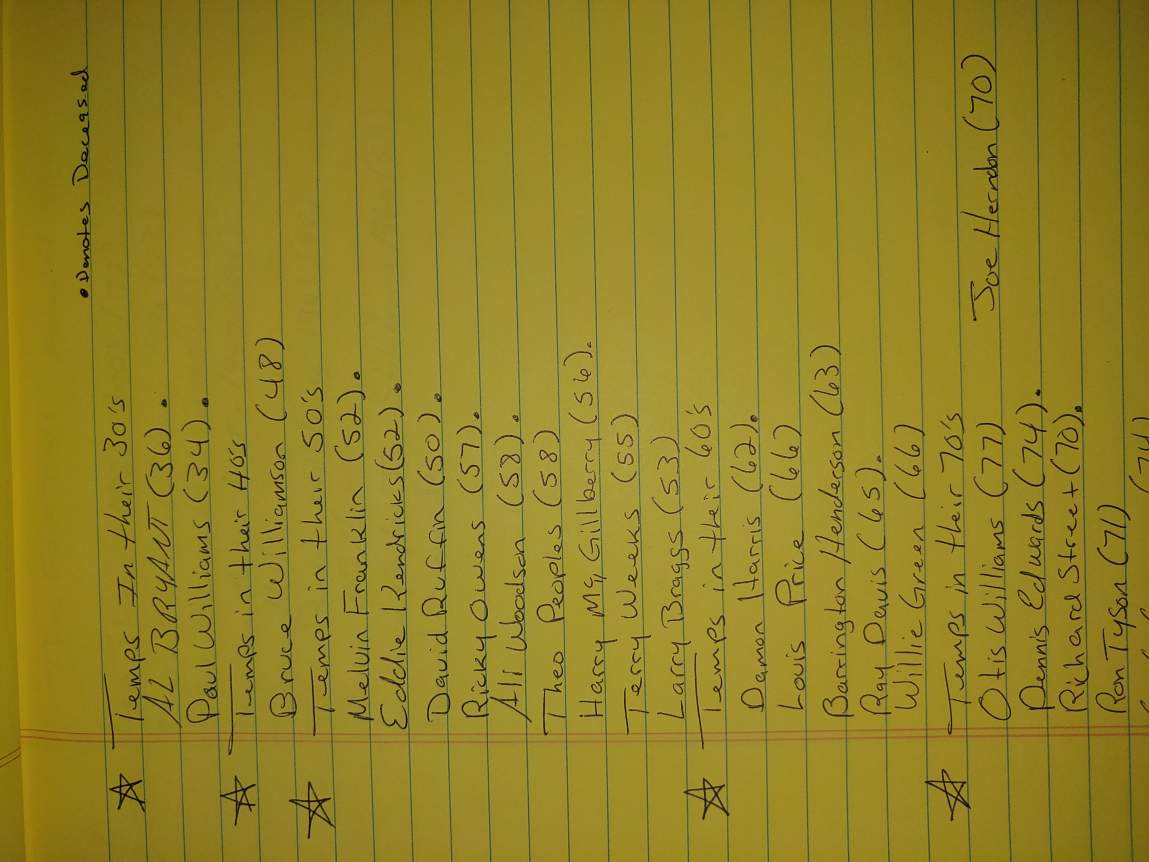 • Denotes Deceased
☆ Temps In their 30's
AL BRYANT (36).
Paul Williams (34).
☆ Temps in their 40's
Bruce Williamson (48)
☆ Temps in their 50's
Melvin Franklin (52).
Eddie Kendricks (52).
David Ruffin (50).
Ricky Owens (57).
Ali Woodson (58).
Theo Peoples (58)
Harry McGillberry (56).
Terry Weeks (55)
Larry Braggs (53)
☆ Temps in their 60's
Damon Harris (62).
Louis Price (66)
Barrington Henderson (63)
Ray Davis (65).
Willie Green (66)
☆ Temps in their 70's
Otis Williams (77) Joe Herndon (70)
Dennis Edwards (74).
Richard Street (70).
Ron Tyson (71)